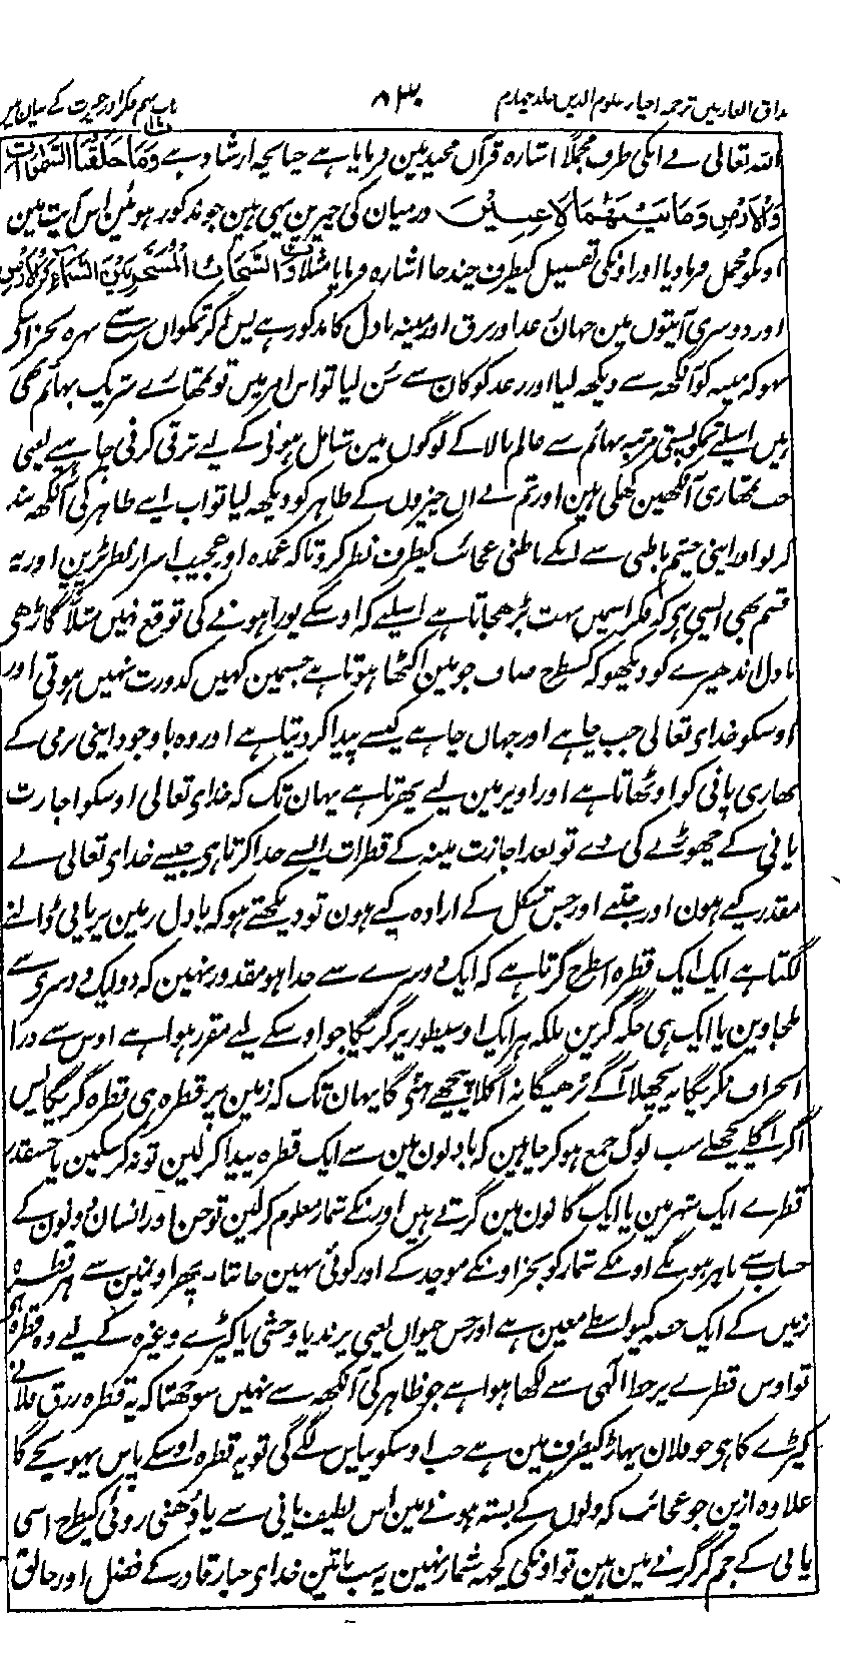 مذاق العارفین ترجمہ احیاء علوم الدین جلد چہارم ۸۳۰ باب نہم فکر اور عبرت کے بیان میں
اللہ تعالی نے انکی طرف مجملًا اشارہ قرآن مجید مین فرمایا ہے چنانچہ ارشاد ہے وَمَا خَلَقْنَا السَّمٰوَاتِ
وَالْاَرْضَ وَمَا بَيْنَهُمَا لَاعِبِيْنَ درمیان کی چیزین یہی ہین جو مذکور ہوئین اس آیت مین
اونکو مجمل فرمادیا اور اونکی تفصیل کیطرف چند جا اشارہ فرمایا مثلًا وَالسَّحَابِ الْمُسَخَّرِ بَيْنَ السَّمَآءِ وَالْاَرْضِ
اور دوسری آیتوں مین جہان رعد اور برق اور مینہ بادل کا مذکور ہے پس اگر تمکو ان سب سے بہرہ بجز اسکے
نہو کہ مینہ کو آنکھہ سے دیکھہ لیا اور رعد کو کان سے سُن لیا تو اس امر میں تو تمھارے شریک بہائم بھی
ہیں اسلیے تمکو پستی مرتبہ بہائم سے عالم بالا کے لوگون مین شامل ہونیکے لیے ترقی کرنی چاہیے یعنی
جب تمھاری آنکھین کھلی ہین اور تم نے ان چیزوں کے ظاہر کو دیکھہ لیا تو اب اپنے ظاہر کی آنکھہ بند
کر لو اور اپنی چشم باطنی سے انکے باطنی عجائب کیطرف نظر کرو تاکہ عمدہ اور عجیب اسرار نظر پڑین اور یہ
قسم بھی ایسی ہی کہ فکر اسمیں بہت بڑھجاتا ہے اسلیے کہ اوسکے پورا ہونے کی توقع نہیں مثلًا گاڑھی
بادل اندھیرے کو دیکھو کہ کسطرح صاف جو مین اکٹھا ہوتا ہے جسمین کہیں کدورت نہیں ہوتی اور
اوسکو خدای تعالی جب چاہے اور جہان چاہے کیسے پیدا کر دیتا ہے اور وہ باوجود اپنی نرمی کے
بھاری پانی کو اوٹھاتا ہے اور اوپر مین لیے پھرتا ہے یہان تک کہ خدای تعالی اوسکو اجازت
پانی کے چھوڑنے کی دے تو بعد اجازت مینہ کے قطرات ایسے جدا کرتا ہی جیسے خدای تعالی نے
مقدر کیے ہون اور جتنے اور جس شکل کے ارادہ کیے ہون تو دیکھتے ہو کہ بادل زمین پر پانی ڈالنے
لگتا ہے ایک ایک قطرہ اسطرح گرتا ہے کہ ایک دوسرے سے جدا ہو مقدور نہین کہ دو ایک دوسری سے
ملجاوین یا ایک ہی جگہ گرین بلکہ ہر ایک اوسیطور پر گریگا جو اوسکے لیے مقرر ہوا ہے اوس سے ذرا
انحراف نکریگا نہ پچھلا آگے بڑھیگا نہ اگلا پیچھے ہٹیگا یہان تک کہ زمین پر قطرہ ہی قطرہ گریگا پس
اگر اگلے پچھلے سب لوگ جمع ہو کر چاہین کہ بادلون مین سے ایک قطرہ پیدا کر لین تو نہ کر سکین یا جسقدر
قطرے ایک شہر مین یا ایک گانون مین گرتے ہیں اونکے شمار معلوم کر لین تو جن اور انسان دونون کے
حساب سے باہر ہونگے اونکے شمار کو بجز اونکے موجد کے اور کوئی نہین جانتا۔ پھر اونمین سے ہر قطرہ
زمین کے ایک حصہ کیواسطے معین ہے اور جس حیوان یعنی پرند یا وحشی یا کیڑے وغیرہ کے لیے وہ قطرہ ہی
تو اوس قطرے پر خط الٰہی سے لکھا ہوا ہے جو ظاہر کی آنکھہ سے نہیں سوجھتا کہ یہ قطرہ رزق فلانے
کیڑے کا ہی جو فلان پہاڑ کیطرف مین ہے جب اوسکو پیاس لگے گی تو یہ قطرہ اوسکے پاس پہونچے گا
علاوہ ازین جو عجائب کہ ولون کے بستہ ہونے مین اس لطیف پانی سے یا دُھنی روئی کیطرح اسی
پانی کے جم کر گرنے مین ہین تو اونکی کچھہ شمار نہین یہ سب باتین خدای جبار قادر کے فضل اور خالق